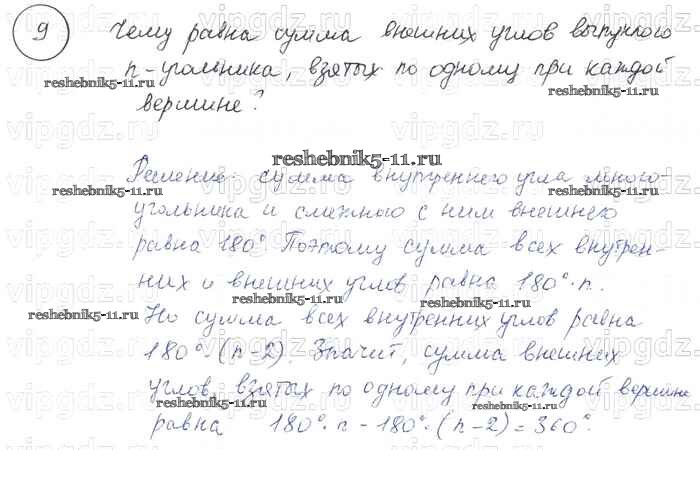 9 Чему равна сумма внешних углов выпуклого
n-угольника, взятых по одному при каждой
reshebnik5-11.ru reshebnik5-11.ru
вершине?
reshebnik5-11.ru
Решение. сумма внутреннего угла много-
reshebnik5-11.ru reshebnik5-11.ru
угольника и смежного с ним внешнего
равна 180°. Поэтому сумма всех внутрен-
них и внешних углов равна 180°·n.
reshebnik5-11.ru reshebnik5-11.ru
reshebnik5-11.ru
Но сумма всех внутренних углов равна
180°·(n-2). Значит, сумма внешних
углов, взятых по одному при каждой вершине
reshebnik5-11.ru reshebnik5-11.ru
равна 180°·n-180°·(n-2)=360°.
vipgdz.ru